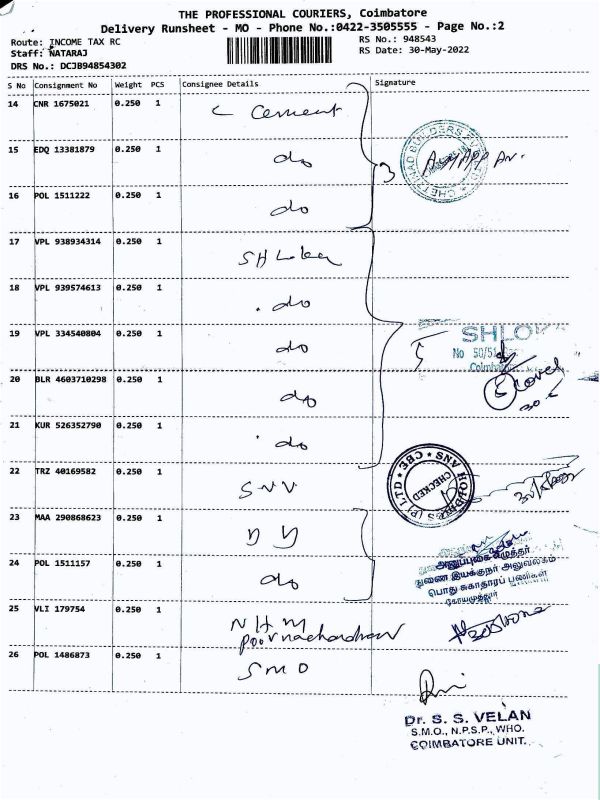 THE PROFESSIONAL COURIERS, Coimbatore
Delivery Runsheet - MO - Phone No.:0422-3505555 - Page No.:2
Route: INCOME TAX RC
RS No.: 948543
Staff: NATARAJ
RS Date: 30-May-2022
DRS No.: DCJB94854302
S No Consignment No Weight PCS Consignee Details Signature
14 CNR 1675021 0.250 1 Cement
15 EDQ 13381879 0.250 1 do
3
16 POL 1511222 0.250 1 do
17 VPL 938934314 0.250 1
18 VPL 939574613 0.250 1 do
19 VPL 334540804 0.250 1 do 5
No 50/51
20 BLR 4603710298 0.250 1 do
21 KUR 526352790 0.250 1 do
22 TRZ 40169582 0.250 1 SNV
CHECKED
23 MAA 290868623 0.250 1
24 POL 1511157 0.250 1 do
துணை இயக்குநர் அலுவலகம்
பொது சுகாதாரப் பணிகள்
கோயமுத்தூர்
25 VLI 179754 0.250 1 NHM
26 POL 1486873 0.250 1 SMO
Dr. S. S. VELAN
S.M.O., N.P.S.P., WHO.
COIMBATORE UNIT.